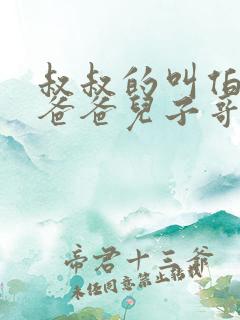 叔叔的叫伯
爸爸兒子哥
帝君十三爷
未经同意禁止转载